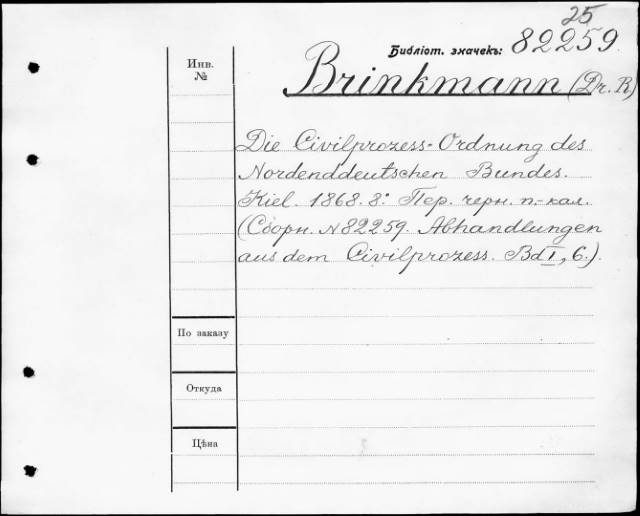 25
Библіот. значекъ: 82259.
Инв. №
Brinkmann (Dr. R)
Die Civilprozess-Ordnung des
Nordenddeutschen Bundes.
Kiel. 1868. 8: Пер. черн. п.-кал.
(Сборн. N 82259. Abhandlungen
aus dem Civilprozess. Bd I, 6.).
По заказу
Откуда
Цѣна